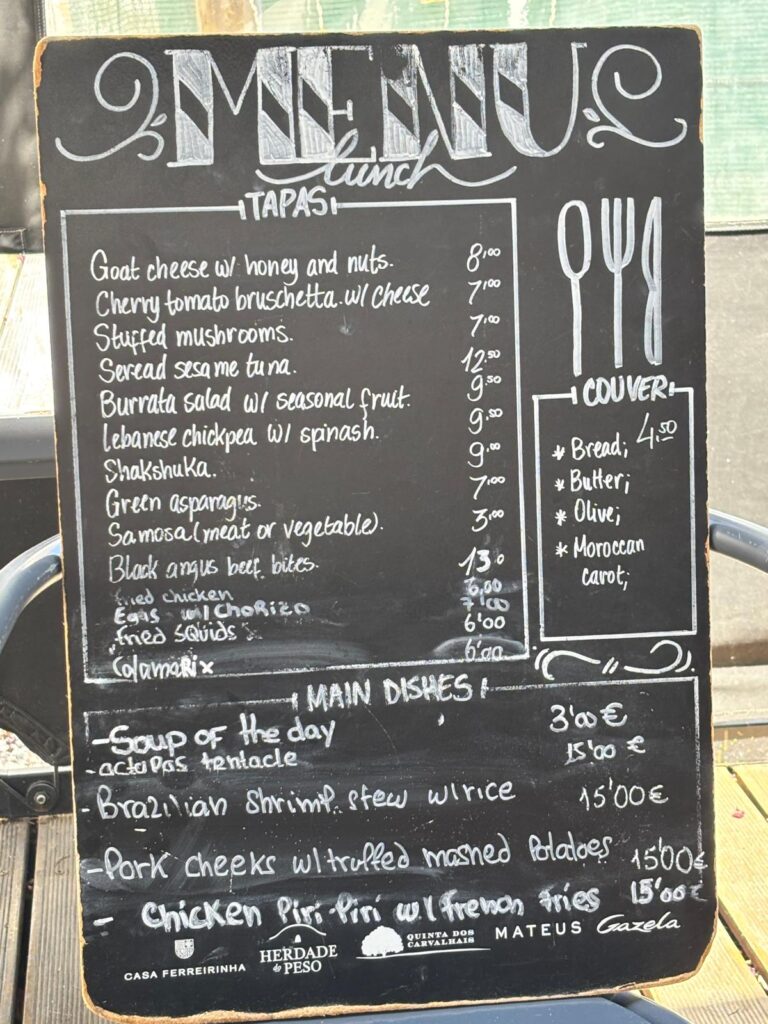 MENU
lunch
TAPAS
Goat cheese w/ honey and nuts. 8,00
Cherry tomato bruschetta w/ cheese 7,00
Stuffed mushrooms. 7,00
Seread sesame tuna. 12,50
Burrata salad w/ seasonal fruit. 9,50
Lebanese chickpea w/ spinash. 9,50
Shakshuka. 9,00
Green asparagus. 7,00
Samosa (meat or vegetable). 3,00
Black angus beef bites. 13,0
fried chicken 6,00
Eggs w/ Chorizo 7'00
fried squids 6'00
Colamarix 6'00
COUVER
* Bread; 4,50
* Butter;
* Olive;
* Moroccan
carot;
MAIN DISHES
- Soup of the day 3'00 €
- octapas tentacle 15'00 €
- Brazilian shrimp stew w/ rice 15'00 €
- Pork cheeks w/ truffed mashed Potatoes 15'00 €
- Chicken Piri-Piri w/ french fries 15'00 €
CASA FERREIRINHA
HERDADE
do PESO
QUINTA DOS
CARVALHAIS
MATEUS
Gazela